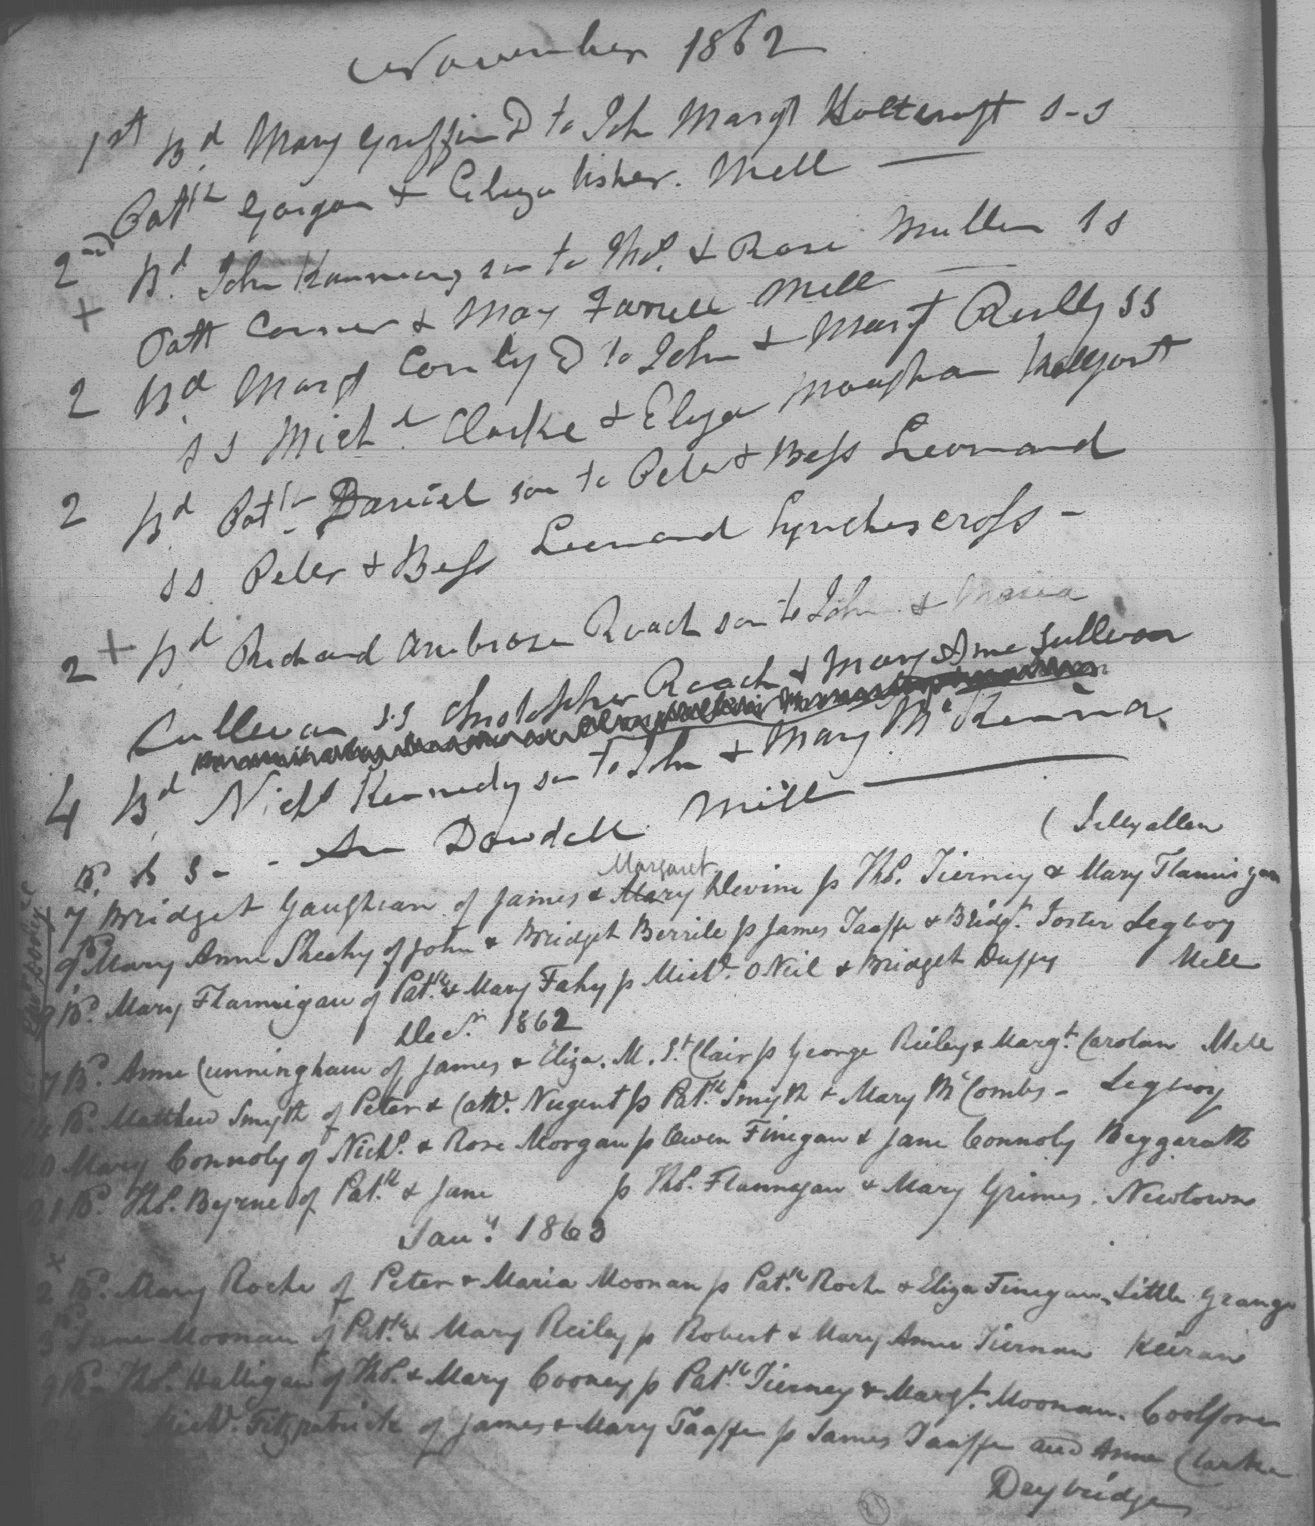 November 1862
1st Bd Mary Griffin D to Joh Margt Holtcroft s-s
Pattk Gorgan + Eliza Usher. Mell —
2nd Bd. John Kennedy son to Ths. & Rose Mullen s s
+ Patt Conner & May Farrell Mell —
2 Bd Margt Conly D to John & Margt Reilly ss
ss Michl Clarke & Eliza Maughan
2 Bd Patk Daniel son to Peter & Bess Leonard
ss Peter & Bess Leonard Lynches cross -
2 + Bd Richard Ambrose Roach son to John & Maria
Sullevan s.s Christopher Roach & Mary Anne Sullevan
4 Bd Nichs Kennedy son to John & Mary McKenna
B. S S - - Ann Dowdall Mill —
( Sillyallen
Margaret
7 Bridget Gaughran of James & Mary Devine p Ths. Tierney & Mary Flannigan
9 Bd Mary Anne Sheehy of John & Bridget Berrile p James Taaffe & Bridgt. Foster Legboy
Bd. Mary Flannigan of Patk. & Mary Fahy p Michl. ONeil & Bridget Duffy Mell
Decr. 1862
7 Bd. Anne Cunningham of James & Eliza. M. St Clair p George Reiley & Margt. Carolan Mell
14 Bd. Matthew Smyth of Peter & Cath. Nugent p Patk Smyth & Mary McCombs - Legboy
Mary Connoly of Nichs. & Rose Morgan p Owen Finegan & Jane Connoly Beggarath
21 Bd. Ths. Byrne of Patk & Jane p Ths. Flannegan & Mary Grimes. Newtown
Jany. 1863
+
2 Bd. Mary Roche of Peter & Maria Moonan p Patk. Roche & Eliza Finegan, Little Grange
3 Jane Moonan of Patk. & Mary Reiley p Robert & Mary Anne Tiernan Keiran
Bd Ths. Halligan of Ths. & Mary Cooney p Patk Tierney & Margt. Moonan. Coolfore
Michl. Fitzpatrick of James & Mary Taaffe p James Taaffe and Anne Clarke
Drybridge
21